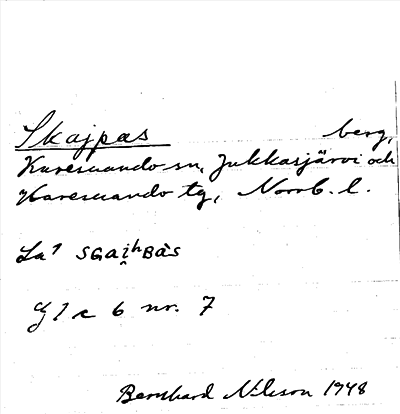 Skajpas berg,
Karesuando sn, Jukkasjärvi och
Karesuando tg, Norrb. l.
La⁹ SGAi̯ʰBÀS
Gl c 6 nr. 7
Bernhard Nilsson 1948